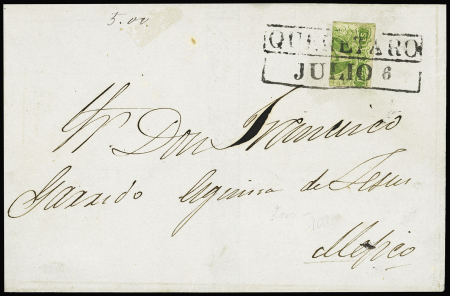 5.00.
QUERETARO
JULIO 6
Sr. Don Francisco
Garrido Esquina de Jesus
Mexico